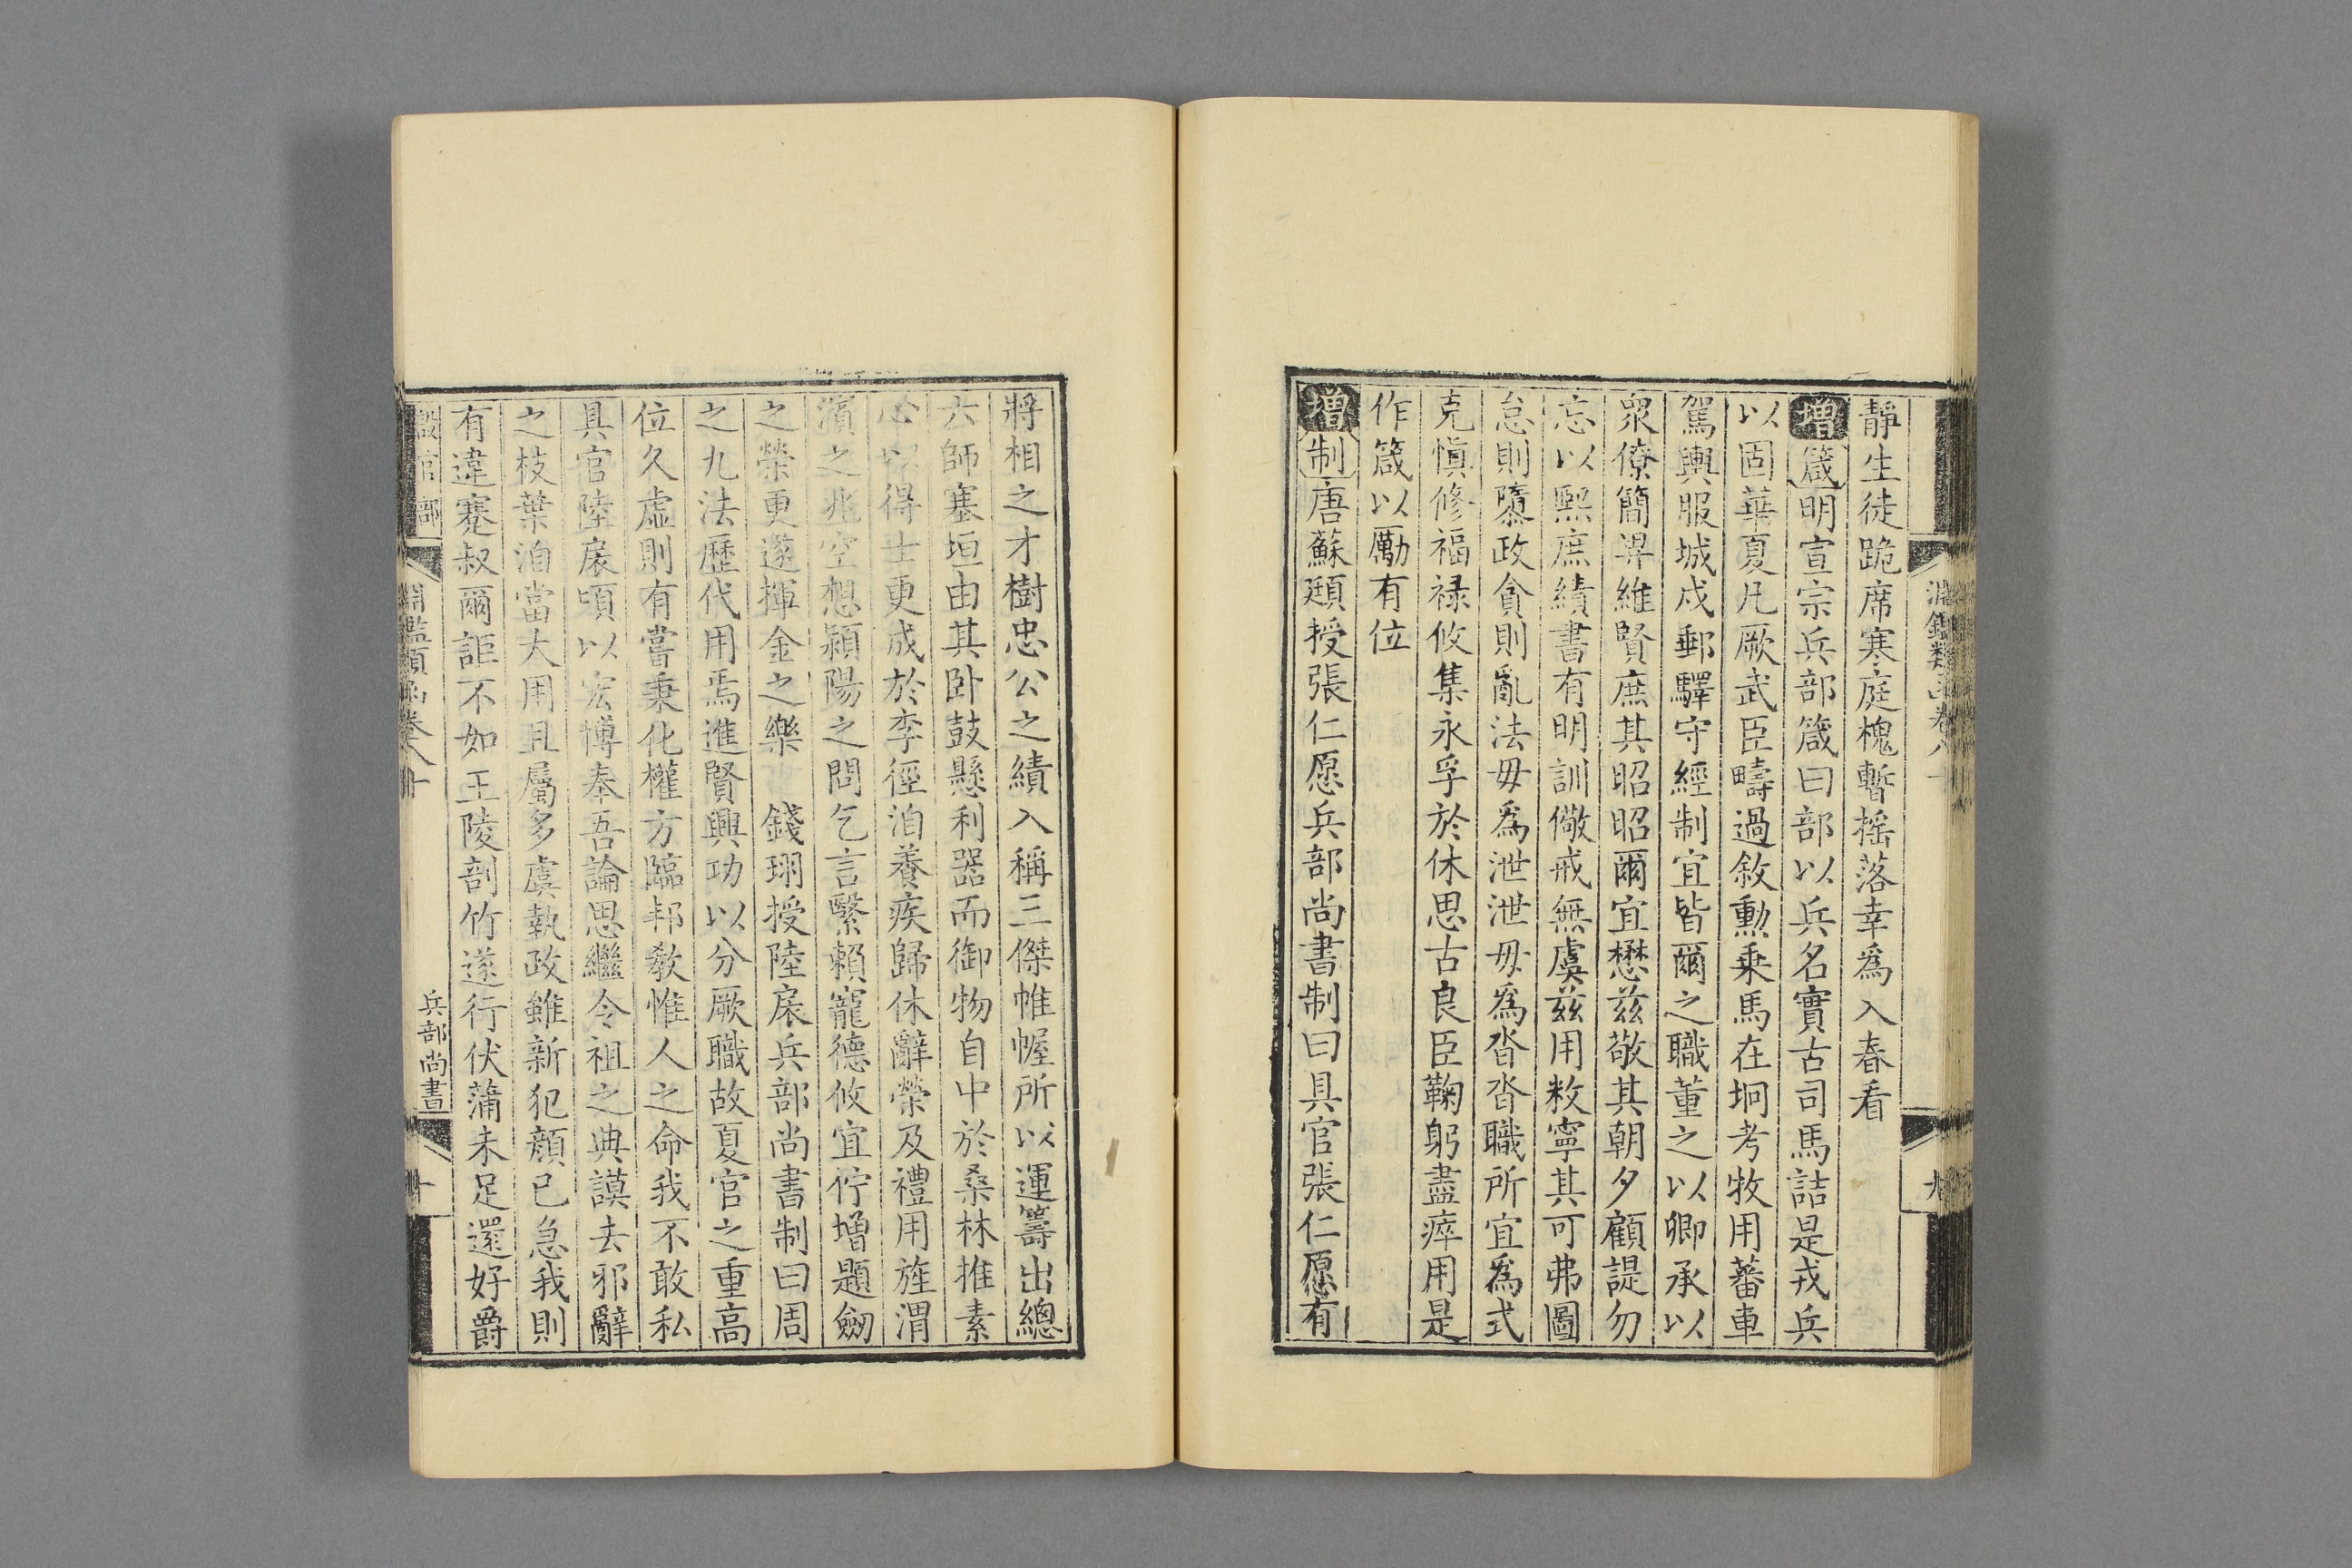 靜生徒跪席寒庭槐暫摇落幸爲入春看
增箴明宣宗兵部箴曰部以兵名實古司馬詰是戎兵
以固華夏凡厥武臣疇過敘勳乘馬在坰考牧用蕃車
駕輿服城戍郵驛守經制宜皆爾之職董之以卿承以
衆僚簡畀維賢庶其昭昭爾宜懋兹敬其朝夕顧諟勿
忘以熙庶績書有明訓儆戒無虞兹用敉寧其可弗圖
怠則隳政貪則亂法毋爲泄泄毋爲沓沓職所宜爲式
克愼修福禄攸集永孚於休思古良臣鞠躬盡瘁用是
作箴以勵有位
增制唐蘇頲授張仁愿兵部尚書制曰具官張仁愿有
將相之才樹忠公之績入稱三傑帷幄所以運籌出總
六師塞垣由其卧鼓懸利器而御物自中於桑林推素
心以得士更成於李徑洎養疾歸休辭榮及禮用旌渭
濱之兆空想潁陽之問乞言繄賴寵德攸宜佇增題劒
之榮更邃揮金之樂 錢珝授陸扆兵部尚書制曰周
之九法歷代用焉進賢興功以分厥職故夏官之重高
位久虚則有嘗秉化權方臨邦敎惟人之命我不敢私
具官陸扆頃以宏博奉吾論思繼令祖之典謨去邪辭
之枝葉洎當大用且屬多虞執政雖新犯顏已急我則
有違蹇叔爾詎不如王陵剖竹遂行伏蒲未足還好爵
設官部 淵鑑類函卷八十 兵部尚書 十